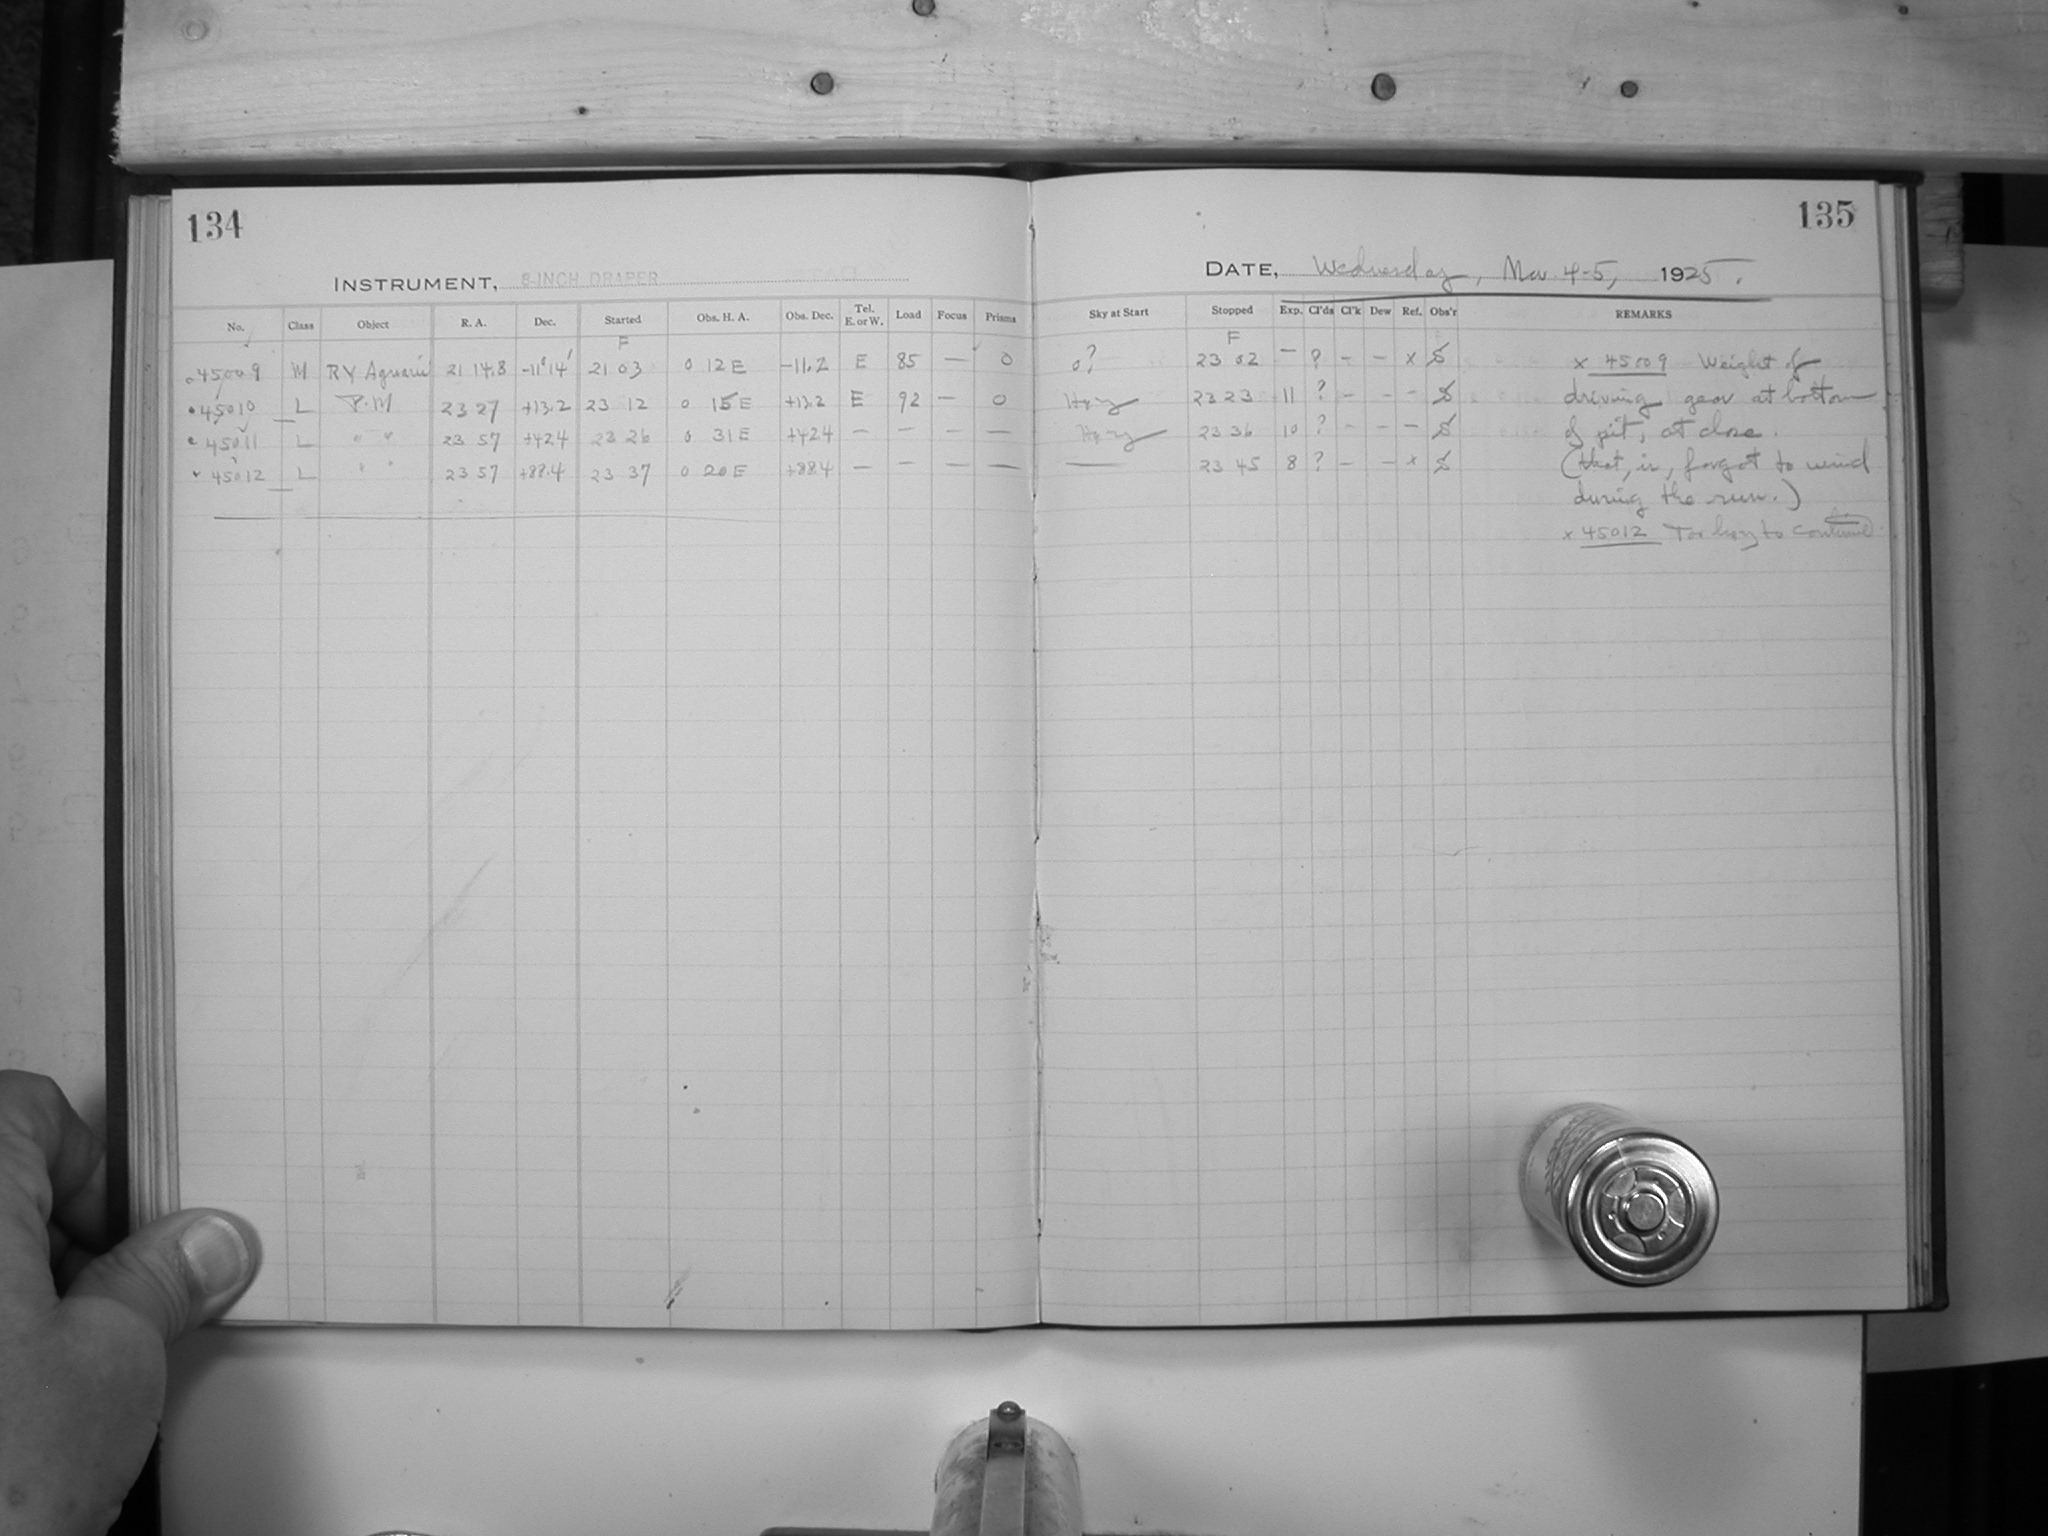 134
135
INSTRUMENT, 8-INCH DRAPER
DATE, Wednesday, Nov. 4-5, 1925.
No. Class Object R. A. Dec. Started Obs. H. A. Obs. Dec. Tel. E. or W. Load Focus Prisms Sky at Start Stopped Exp. Cl'ds Cl'k Dew Ref. Obs'r REMARKS
F F
45009 M RY Aquarii 21 14.8 -11°14' 21 03 0 12 E -11.2 E 85 — 0 0? 23 02 — ? - - x S x 45009 Weight of
45010 L P.M 23 27 +13.2 23 12 0 15 E +13.2 E 92 — 0 Hazy 23 23 11 ? - - - S driving gear at bottom
45011 L " " 23 57 +42.4 23 26 0 31 E +42.4 — — — — Hazy 23 36 10 ? - - - S of pit, at close.
45012 L " " 23 57 +88.4 23 37 0 20 E +88.4 — — — — — 23 45 8 ? - - x S (that, is, forgot to wind
during the run.)
x 45012 Too hazy to continue